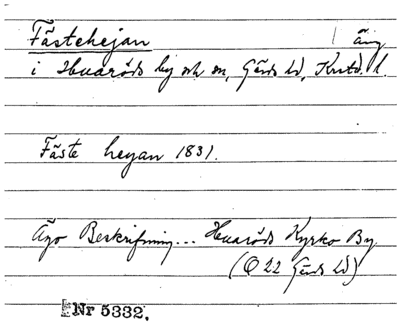 Fästehejan äng
i Huaröds by och sn, Gärds hd, Krstd. l.
Fäste heyan 1831.
Ägo Beskrifning... Huaröds Kyrko By
(O 22 Gärds hd)
Nr 5332.